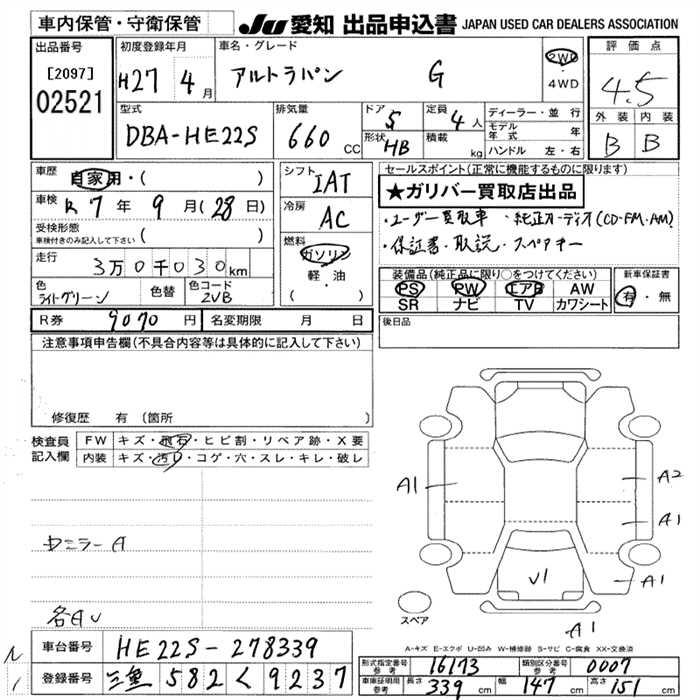 車内保管・守衛保管
JU 愛知 出品申込書 JAPAN USED CAR DEALERS ASSOCIATION
出品番号
[2097]
02521
初度登録年月
H27年4月
車名・グレード
アルトラパン G
2WD
・
4WD
評価点
4.5
外装 内装
B B
型式
DBA-HE22S
排気量
660 CC
ドア 5
形状 HB
定員 4人
積載 kg
ディーラー・並行
モデル年式 年
ハンドル 左・右
車歴 自家用・( )
車検 R7年9月(28日)
受検形態
車検付きのみ記入して下さい ( )
走行 3万0千030km
色 ライトグリーン
色替
色コード ZVB
R券 9070円 名変期限 月 日
シフト IAT
冷房 AC
燃料
ガソリン
軽・油
( )
セールスポイント(正常に機能するものに限ります)
★ガリバー買取店出品
・ユーザー買取車 ・純正オーディオ(CD・FM・AM)
・保証書・取説・スペアキー
装備品(純正品に限り○をつけてください)
PS PW エアB AW
SR ナビ TV カワシート
新車保証書
有・無
後日品
注意事項申告欄(不具合内容等は具体的に記入して下さい)
修復歴 有(箇所 )
検査員記入欄
FW キズ・飛石・ヒビ割・リペア跡・X要
内装 キズ・汚レ・コゲ・穴・スレ・キレ・破レ
ミラーA
各AU
A1
A2
A1
A1
U1
A1
スペア
A-キズ E-エクボ U-凹み W-補修跡 S-サビ C-腐食 XX-交換済
車台番号 HE22S-278339
登録番号 三重 582 く 9237
形式指定番号 参考 16173 類別区分番号 参考 0007
車庫証明用 参考 長さ 339cm 幅 147cm 高さ 151cm